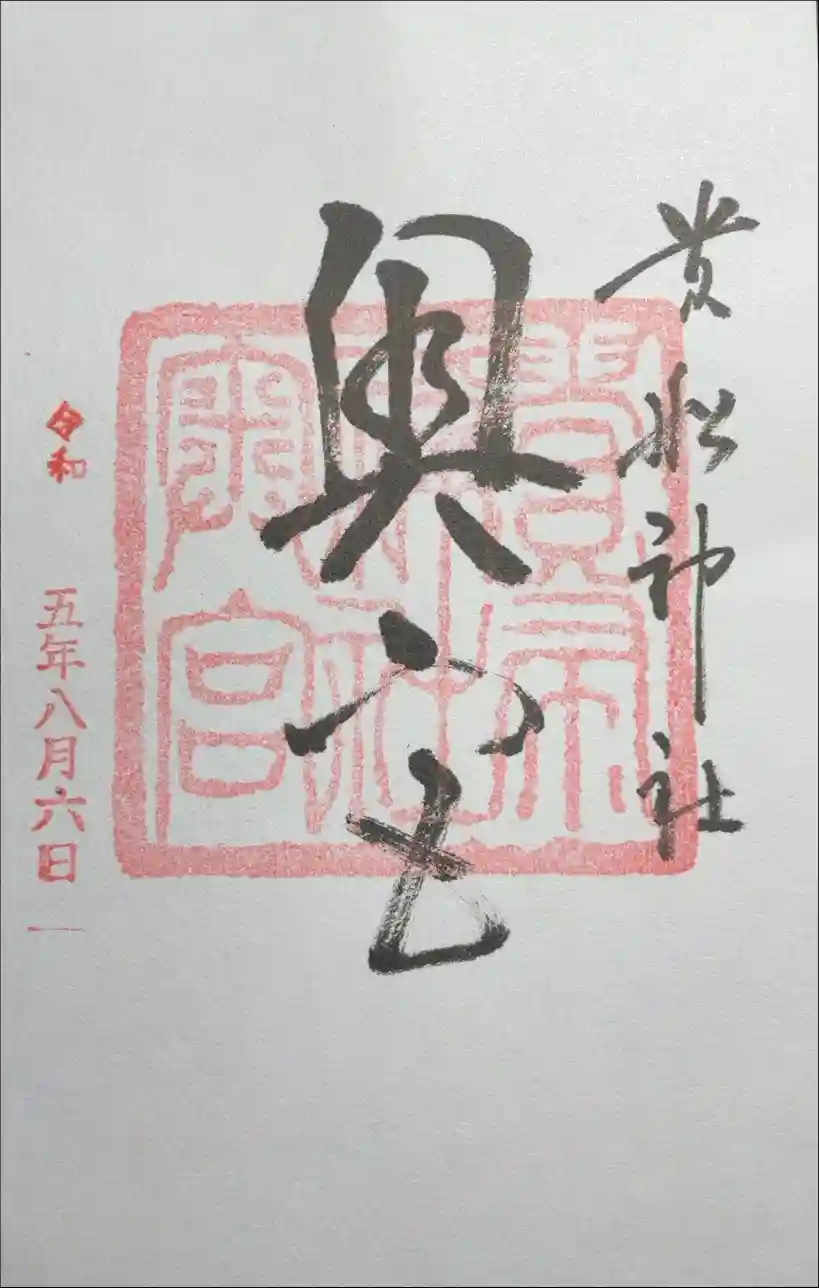 貴船神社
奥宮
貴布
社
奥宮
令和 五年八月六日